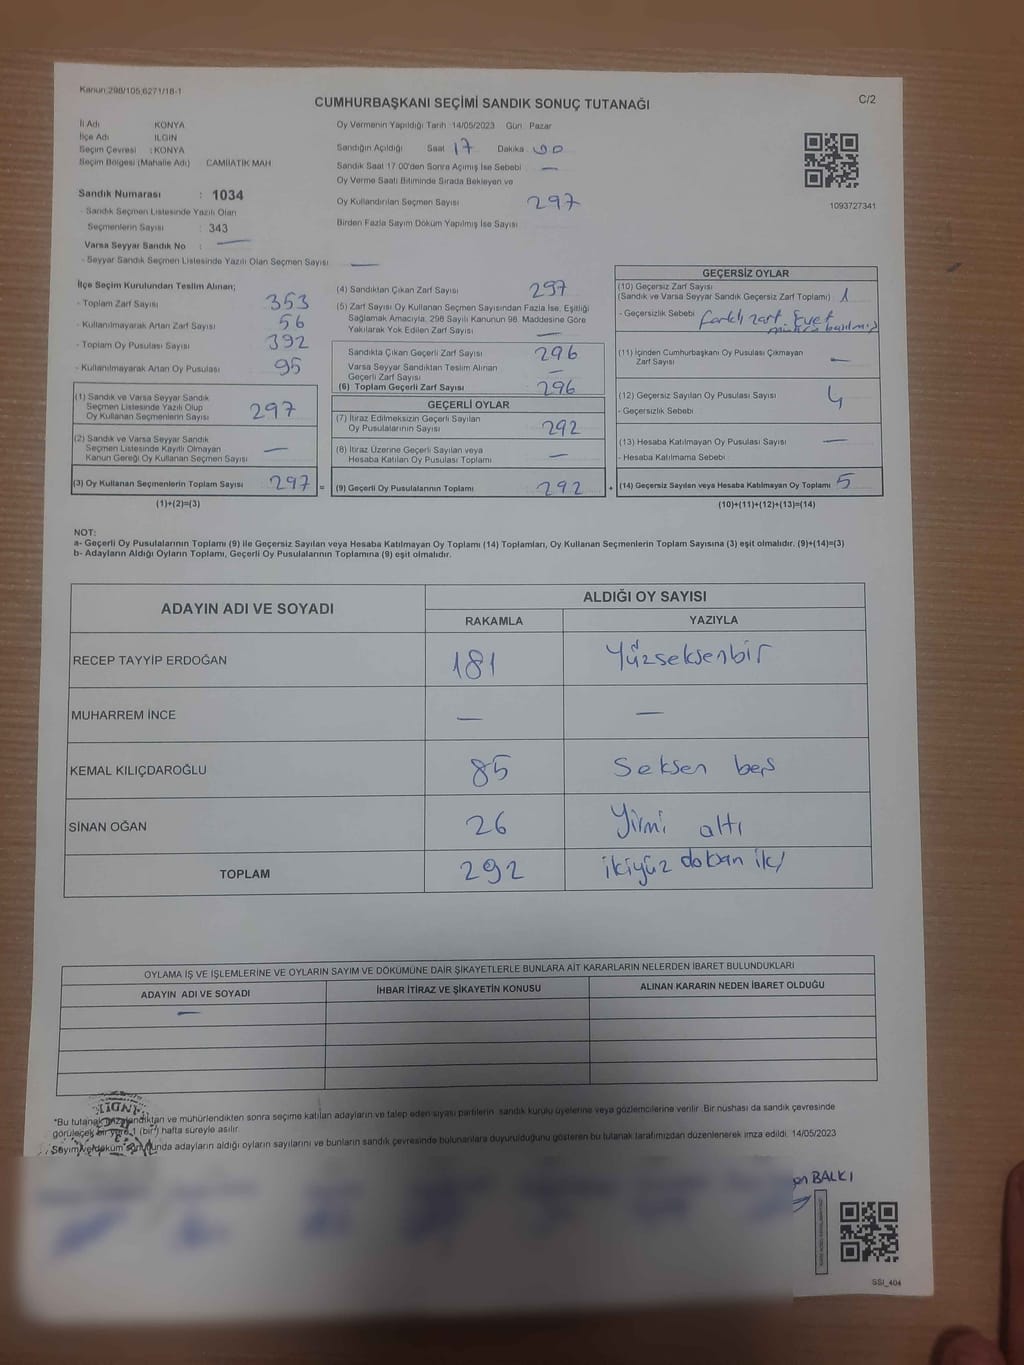 Kanun:298/105;6271/18-1
CUMHURBAŞKANI SEÇİMİ SANDIK SONUÇ TUTANAĞI
C/2
İl Adı KONYA
İlçe Adı ILGIN
Seçim Çevresi : KONYA
Seçim Bölgesi (Mahalle Adı) CAMİİATİK MAH.
Sandık Numarası : 1034
- Sandık Seçmen Listesinde Yazılı Olan
Seçmenlerin Sayısı : 343
Varsa Seyyar Sandık No : —
- Seyyar Sandık Seçmen Listesinde Yazılı Olan Seçmen Sayısı —
Oy Vermenin Yapıldığı Tarih 14/05/2023 Gün Pazar
Sandığın Açıldığı Saat 17 Dakika
Sandık Saat 17.00'den Sonra Açılmış İse Sebebi —
Oy Verme Saati Bitiminde Sırada Bekleyen ve
Oy Kullandırılan Seçmen Sayısı 297
Birden Fazla Sayım Döküm Yapılmış İse Sayısı
1093727341
İlçe Seçim Kurulundan Teslim Alınan;
- Toplam Zarf Sayısı 353
- Kullanılmayarak Artan Zarf Sayısı 56
- Toplam Oy Pusulası Sayısı 392
- Kullanılmayarak Artan Oy Pusulası 95
(1) Sandık ve Varsa Seyyar Sandık
Seçmen Listesinde Yazılı Olup
Oy Kullanan Seçmenlerin Sayısı 297
(2) Sandık ve Varsa Seyyar Sandık
Seçmen Listesinde Kayıtlı Olmayan
Kanun Gereği Oy Kullanan Seçmen Sayısı —
(3) Oy Kullanan Seçmenlerin Toplam Sayısı 297 =
(1)+(2)=(3)
(4) Sandıktan Çıkan Zarf Sayısı 297
(5) Zarf Sayısı Oy Kullanan Seçmen Sayısından Fazla İse, Eşitliği
Sağlamak Amacıyla, 298 Sayılı Kanunun 98. Maddesine Göre
Yakılarak Yok Edilen Zarf Sayısı —
Sandıkta Çıkan Geçerli Zarf Sayısı 296
Varsa Seyyar Sandıktan Teslim Alınan
Geçerli Zarf Sayısı —
(6) Toplam Geçerli Zarf Sayısı 296
GEÇERLİ OYLAR
(7) İtiraz Edilmeksizin Geçerli Sayılan
Oy Pusulalarının Sayısı 292
(8) İtiraz Üzerine Geçerli Sayılan veya
Hesaba Katılan Oy Pusulası Toplamı —
(9) Geçerli Oy Pusulalarının Toplamı 292 +
GEÇERSİZ OYLAR
(10) Geçersiz Zarf Sayısı
(Sandık ve Varsa Seyyar Sandık Geçersiz Zarf Toplamı) 1
- Geçersizlik Sebebi farklı zarf Evet
(11) İçinden Cumhurbaşkanı Oy Pusulası Çıkmayan
Zarf Sayısı —
(12) Geçersiz Sayılan Oy Pusulası Sayısı 4
- Geçersizlik Sebebi
(13) Hesaba Katılmayan Oy Pusulası Sayısı —
- Hesaba Katılmama Sebebi
(14) Geçersiz Sayılan veya Hesaba Katılmayan Oy Toplamı 5
(10)+(11)+(12)+(13)=(14)
NOT:
a- Geçerli Oy Pusulalarının Toplamı (9) ile Geçersiz Sayılan veya Hesaba Katılmayan Oy Toplamı (14) Toplamları, Oy Kullanan Seçmenlerin Toplam Sayısına (3) eşit olmalıdır. (9)+(14)=(3)
b- Adayların Aldığı Oyların Toplamı, Geçerli Oy Pusulalarının Toplamına (9) eşit olmalıdır.
ADAYIN ADI VE SOYADI
ALDIĞI OY SAYISI
RAKAMLA YAZIYLA
RECEP TAYYİP ERDOĞAN 181 Yüzseksenbir
MUHARREM İNCE — —
KEMAL KILIÇDAROĞLU 85 Seksen beş
SİNAN OĞAN 26 Yirmi altı
TOPLAM 292 ikiyüz doksan iki
OYLAMA İŞ VE İŞLEMLERİNE VE OYLARIN SAYIM VE DÖKÜMÜNE DAİR ŞİKAYETLERLE BUNLARA AİT KARARLARIN NELERDEN İBARET BULUNDUKLARI
ADAYIN ADI VE SOYADI İHBAR İTİRAZ VE ŞİKAYETİN KONUSU ALINAN KARARIN NEDEN İBARET OLDUĞU
—
*Bu tutanak imzalandıktan ve mühürlendikten sonra seçime katılan adayların ve talep eden siyasi partilerin sandık kurulu üyelerine veya gözlemcilerine verilir. Bir nushası da sandık çevresinde
görülecek bir yere 1 (bir) hafta süreyle asılır.
Sayım ve döküm sonunda adayların aldığı oyların sayılarını ve bunların sandık çevresinde bulunanlara duyurulduğunu gösteren bu tutanak tarafımızdan düzenlenerek imza edildi. 14/05/2023
BALKI
SSI_404